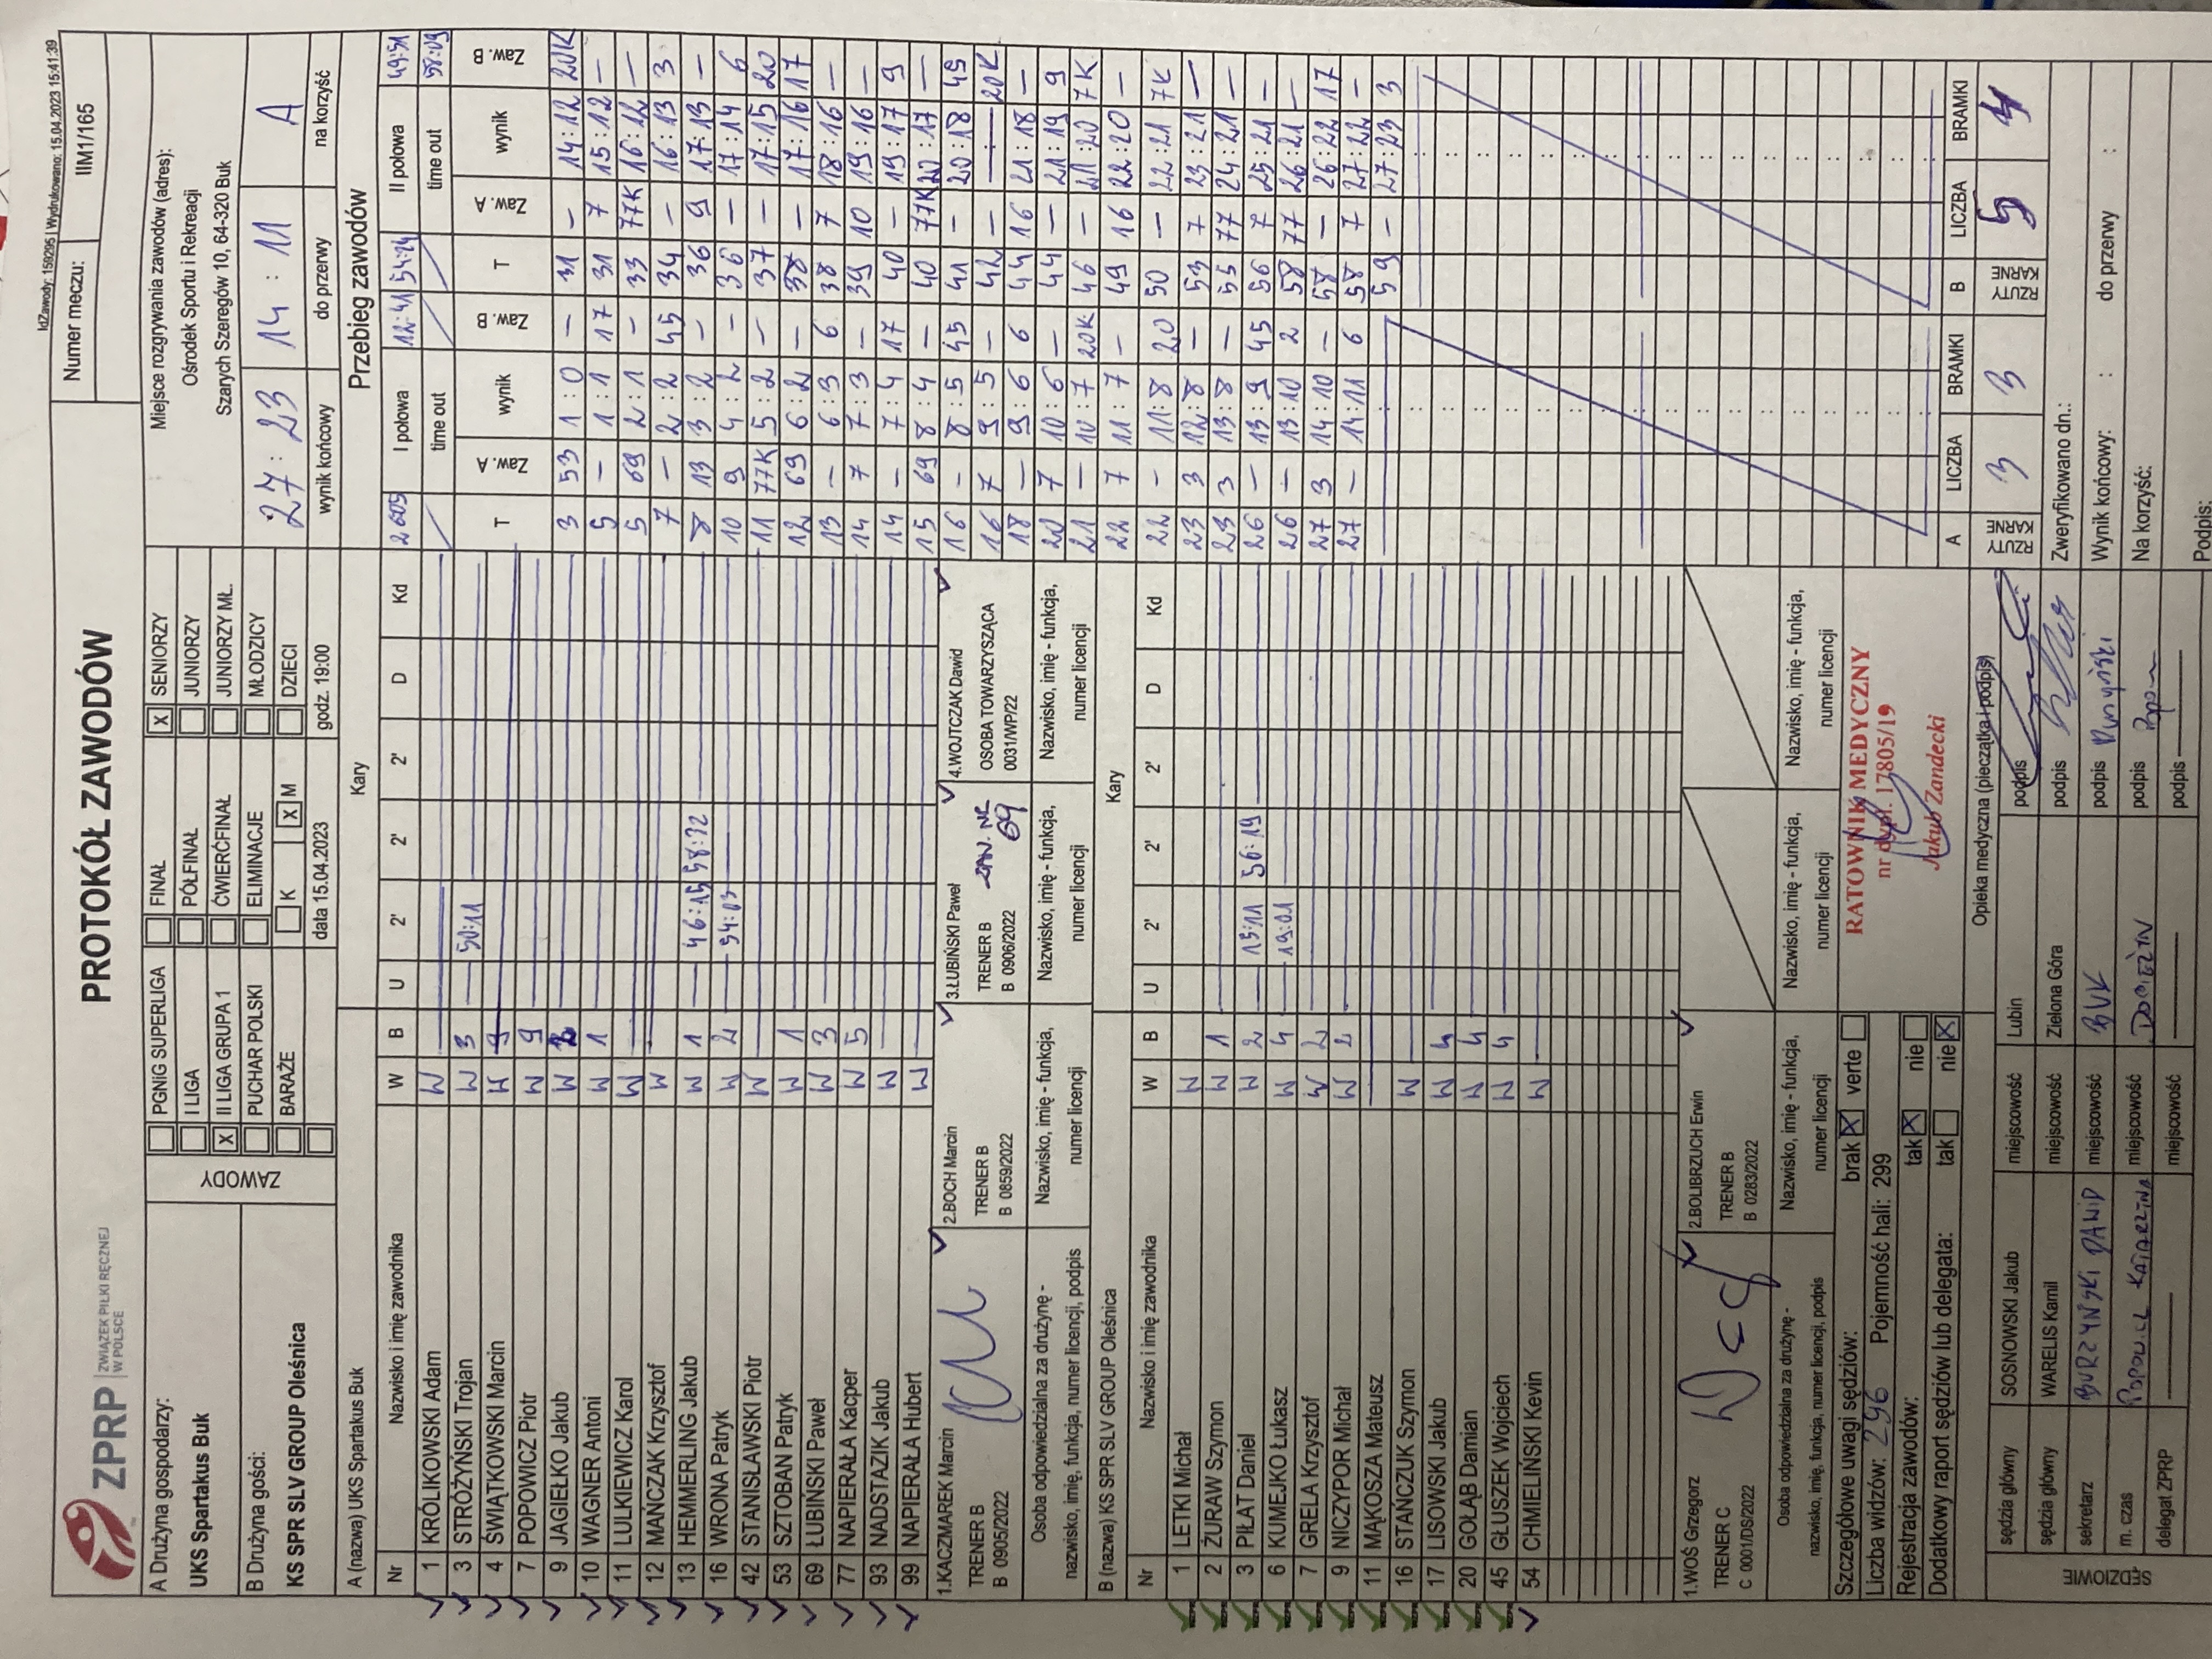 IdZawody: 159295 | Wydrukowano: 15.04.2023 15:41:39
ZPRP ZWIĄZEK PIŁKI RĘCZNEJ W POLSCE
PROTOKÓŁ ZAWODÓW
Numer meczu: IIM1/165
A Drużyna gospodarzy:
UKS Spartakus Buk
B Drużyna gości:
KS SPR SLV GROUP Oleśnica
ZAWODY
PGNIG SUPERLIGA
I LIGA
X II LIGA GRUPA 1
PUCHAR POLSKI
BARAŻE
FINAŁ
PÓŁFINAŁ
ĆWIERĆFINAŁ
ELIMINACJE
K X M
X SENIORZY
JUNIORZY
JUNIORZY MŁ.
MŁODZICY
DZIECI
data 15.04.2023 godz. 19:00
Miejsce rozgrywania zawodów (adres):
Ośrodek Sportu i Rekreacji
Szarych Szeregów 10, 64-320 Buk
27 : 23 14 : 11 A
wynik końcowy do przerwy na korzyść
A (nazwa) UKS Spartakus Buk Kary
Nr Nazwisko i imię zawodnika W B U 2' 2' 2' D Kd
1 KRÓLIKOWSKI Adam W
3 STRÓŻYŃSKI Trojan W 3 50:11
4 ŚWIĄTKOWSKI Marcin W
7 POPOWICZ Piotr W 9
9 JAGIEŁKO Jakub W
10 WAGNER Antoni W 1
11 LULKIEWICZ Karol W
12 MAŃCZAK Krzysztof W
13 HEMMERLING Jakub W 1 46:15 58:32
16 WRONA Patryk W 2 54:03
42 STANISŁAWSKI Piotr W
53 SZTOBAN Patryk W 1
69 ŁUBIŃSKI Paweł W 3
77 NAPIERAŁA Kacper W 5
93 NADSTAZIK Jakub W
99 NAPIERAŁA Hubert W
1.KACZMAREK Marcin
TRENER B
B 0905/2022
2.BOCH Marcin
TRENER B
B 0859/2022
3.ŁUBIŃSKI Paweł
TRENER B
B 0906/2022
ZAW. NR 69
4.WOJTCZAK Dawid
OSOBA TOWARZYSZĄCA
0031/WP/22
Osoba odpowiedzialna za drużynę -
nazwisko, imię, funkcja, numer licencji, podpis
Nazwisko, imię - funkcja,
numer licencji
Nazwisko, imię - funkcja,
numer licencji
Nazwisko, imię - funkcja,
numer licencji
B (nazwa) KS SPR SLV GROUP Oleśnica Kary
Nr Nazwisko i imię zawodnika W B U 2' 2' 2' D Kd
1 LETKI Michał W
2 ŻURAW Szymon W 1
3 PIŁAT Daniel W 2 15:11 56:19
6 KUMEJKO Łukasz W 4 19:01
7 GRELA Krzysztof W 2
9 NICZYPOR Michał W 2
11 MĄKOSZA Mateusz
16 STAŃCZUK Szymon W
17 LISOWSKI Jakub W 4
20 GOŁĄB Damian W 4
45 GŁUSZEK Wojciech W 4
54 CHMIELIŃSKI Kevin W
1.WOŚ Grzegorz
TRENER C
C 0001/DS/2022
2.BOLIBRZUCH Erwin
TRENER B
B 0283/2022
Osoba odpowiedzialna za drużynę -
nazwisko, imię, funkcja, numer licencji, podpis
Nazwisko, imię - funkcja,
numer licencji
Nazwisko, imię - funkcja,
numer licencji
Nazwisko, imię - funkcja,
numer licencji
Szczegółowe uwagi sędziów: brak X verte
Liczba widzów: 296 Pojemność hali: 299
Rejestracja zawodów: tak X nie
Dodatkowy raport sędziów lub delegata: tak nie X
RATOWNIK MEDYCZNY
nr dypl. 17805/19
Jakub Zandecki
Opieka medyczna (pieczątka i podpis)
SĘDZIOWIE
sędzia główny SOSNOWSKI Jakub miejscowość Lubin podpis
sędzia główny WARELIS Kamil miejscowość Zielona Góra podpis
sekretarz BURZYŃSKI DAWID miejscowość BUK podpis
m. czas POPOWICZ KATARZYNA miejscowość podpis
delegat ZPRP miejscowość podpis
Przebieg zawodów
I połowa 12:41 54:24 II połowa 49:51
time out time out 58:09
T Zaw. A wynik Zaw. B T Zaw. A wynik Zaw. B
3 53 1 : 0 — 31 — 14 : 12 20K
5 — 1 : 1 17 31 7 15 : 12 —
5 69 2 : 1 — 33 77K 16 : 12 —
7 — 2 : 2 45 34 — 16 : 13 3
8 13 3 : 2 — 36 9 17 : 13 —
10 9 4 : 2 — 36 — 17 : 14 6
11 77K 5 : 2 — 37 — 17 : 15 20
12 69 6 : 2 — 38 — 17 : 16 17
13 — 6 : 3 6 38 7 18 : 16 —
14 7 7 : 3 — 39 10 19 : 16 —
14 — 7 : 4 17 40 — 19 : 17 9
15 69 8 : 4 — 40 77K 20 : 17 —
16 — 8 : 5 45 41 — 20 : 18 45
16 7 9 : 5 — 42 — — 20K
18 — 9 : 6 6 44 16 21 : 18 —
20 7 10 : 6 — 44 — 21 : 19 9
21 — 10 : 7 20K 46 — 21 : 20 7K
22 7 11 : 7 — 49 16 22 : 20 —
22 — 11 : 8 20 50 — 22 : 21 7K
23 3 12 : 8 — 53 7 23 : 21 —
23 3 13 : 8 — 55 77 24 : 21 —
26 — 13 : 9 45 56 7 25 : 21 —
26 — 13 : 10 2 58 77 26 : 21 —
27 3 14 : 10 — 58 — 26 : 22 17
27 — 14 : 11 6 58 7 27 : 22 —
59 — 27 : 23 3
A LICZBA BRAMKI B LICZBA BRAMKI
RZUTY KARNE 3 3 RZUTY KARNE 5 4
Zweryfikowano dn.:
Wynik końcowy: : do przerwy :
Na korzyść:
Podpis: